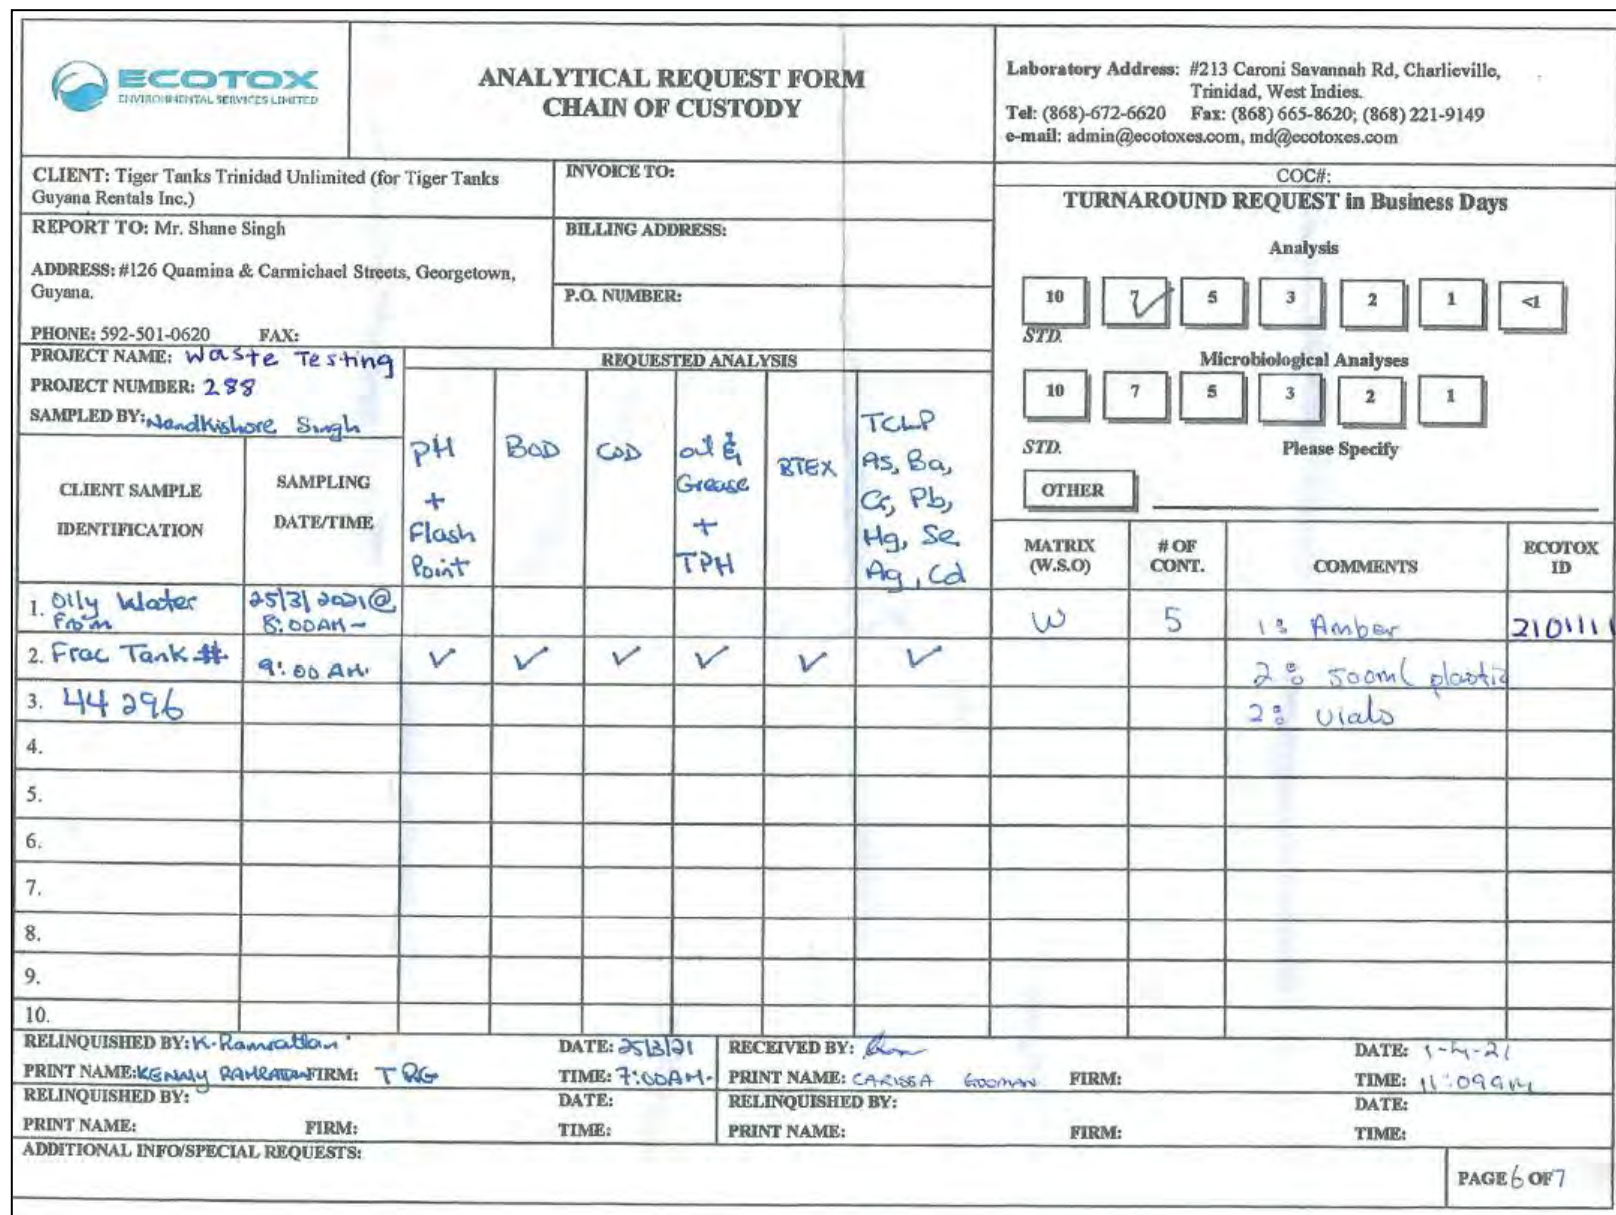 ECOTOX
ENVIRONMENTAL SERVICES LIMITED
ANALYTICAL REQUEST FORM
CHAIN OF CUSTODY
Laboratory Address: #213 Caroni Savannah Rd, Charlieville,
Trinidad, West Indies.
Tel: (868)-672-6620 Fax: (868) 665-8620; (868) 221-9149
e-mail: admin@ecotoxes.com, md@ecotoxes.com
CLIENT: Tiger Tanks Trinidad Unlimited (for Tiger Tanks
Guyana Rentals Inc.)
INVOICE TO:
REPORT TO: Mr. Shane Singh
ADDRESS: #126 Quamina & Carmichael Streets, Georgetown,
Guyana.
PHONE: 592-501-0620 FAX:
BILLING ADDRESS:
P.O. NUMBER:
COC#:
TURNAROUND REQUEST in Business Days
Analysis
10 7 ✓ 5 3 2 1 <1
STD.
Microbiological Analyses
10 7 5 3 2 1
STD. Please Specify
OTHER
PROJECT NAME: Waste Testing
PROJECT NUMBER: 288
SAMPLED BY: Nandkishore Singh
REQUESTED ANALYSIS
CLIENT SAMPLE
IDENTIFICATION
SAMPLING
DATE/TIME
PH
+
Flash
Point
BOD
COD
oil &
Grease
+
TPH
BTEX
TCLP
As, Ba,
Cr, Pb,
Hg, Se
Ag, Cd
MATRIX
(W.S.O)
# OF
CONT.
COMMENTS
ECOTOX
ID
1. Oily Water
From
25/3/2021@
8:00AM-
W 5 1: Amber 2101111
2. Frac Tank # 9:00 AM. ✓ ✓ ✓ ✓ ✓ ✓ 2: 500ml plastic
3. 44296 2: vials
4.
5.
6.
7.
8.
9.
10.
RELINQUISHED BY: K. Ramrattan DATE: 25/3/21 RECEIVED BY: DATE: 1-4-21
PRINT NAME: KENNY FIRM: TRG TIME: 7:00AM- PRINT NAME: CARISSA FIRM: TIME: 11:09am
RELINQUISHED BY: DATE: RELINQUISHED BY: DATE:
PRINT NAME: FIRM: TIME: PRINT NAME: FIRM: TIME:
ADDITIONAL INFO/SPECIAL REQUESTS:
PAGE 6 OF 7